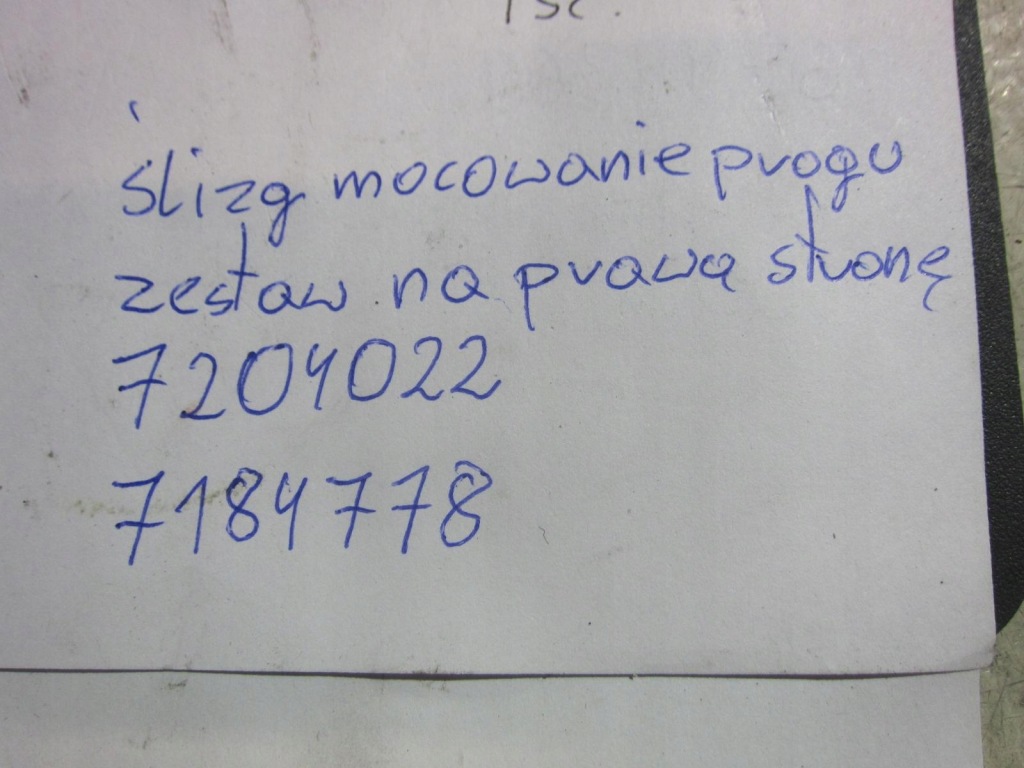 ślizg mocowanie progu
zestaw na prawą stronę
7204022
7184778